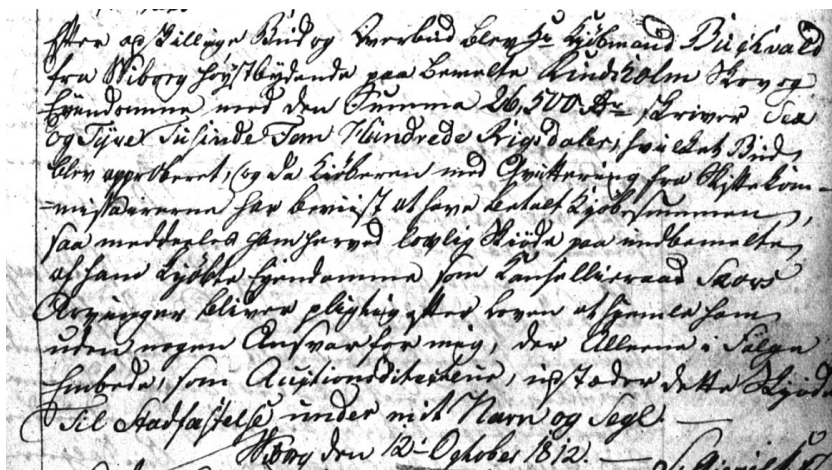 Efter adskillige Bud og Overbud blev Hr Kjöbmand Buchwald
fra Wiborg höystbydende paa bemelte Lindholm Skov og
Eyendomme med den Summa 26,500 Rdr skriver Sex
og Tyve Tusinde Fem Hundrede Rigsdaler, hvilket Bud
blev approberet, og da Kiöberen med Qvittering fra Skiftekom-
-missairerne har beviist at have betalt Kjöbesummen,
saa meddeeles ham herved lovlig Skiöde paa indbemelte
af ham kjöbte Eyendomme som Cancellieraad
Arvinger bliver pligtig efter Loven at hiemle ham
uden nogen Ansvar for mig, der Alleene i Fölge
Embede, som Auctionsdirecteur, udstæder dette Skjöde
Til Stadfæstelse under mit Navn og Segl. —
Wiborg den 12 October 1812. —